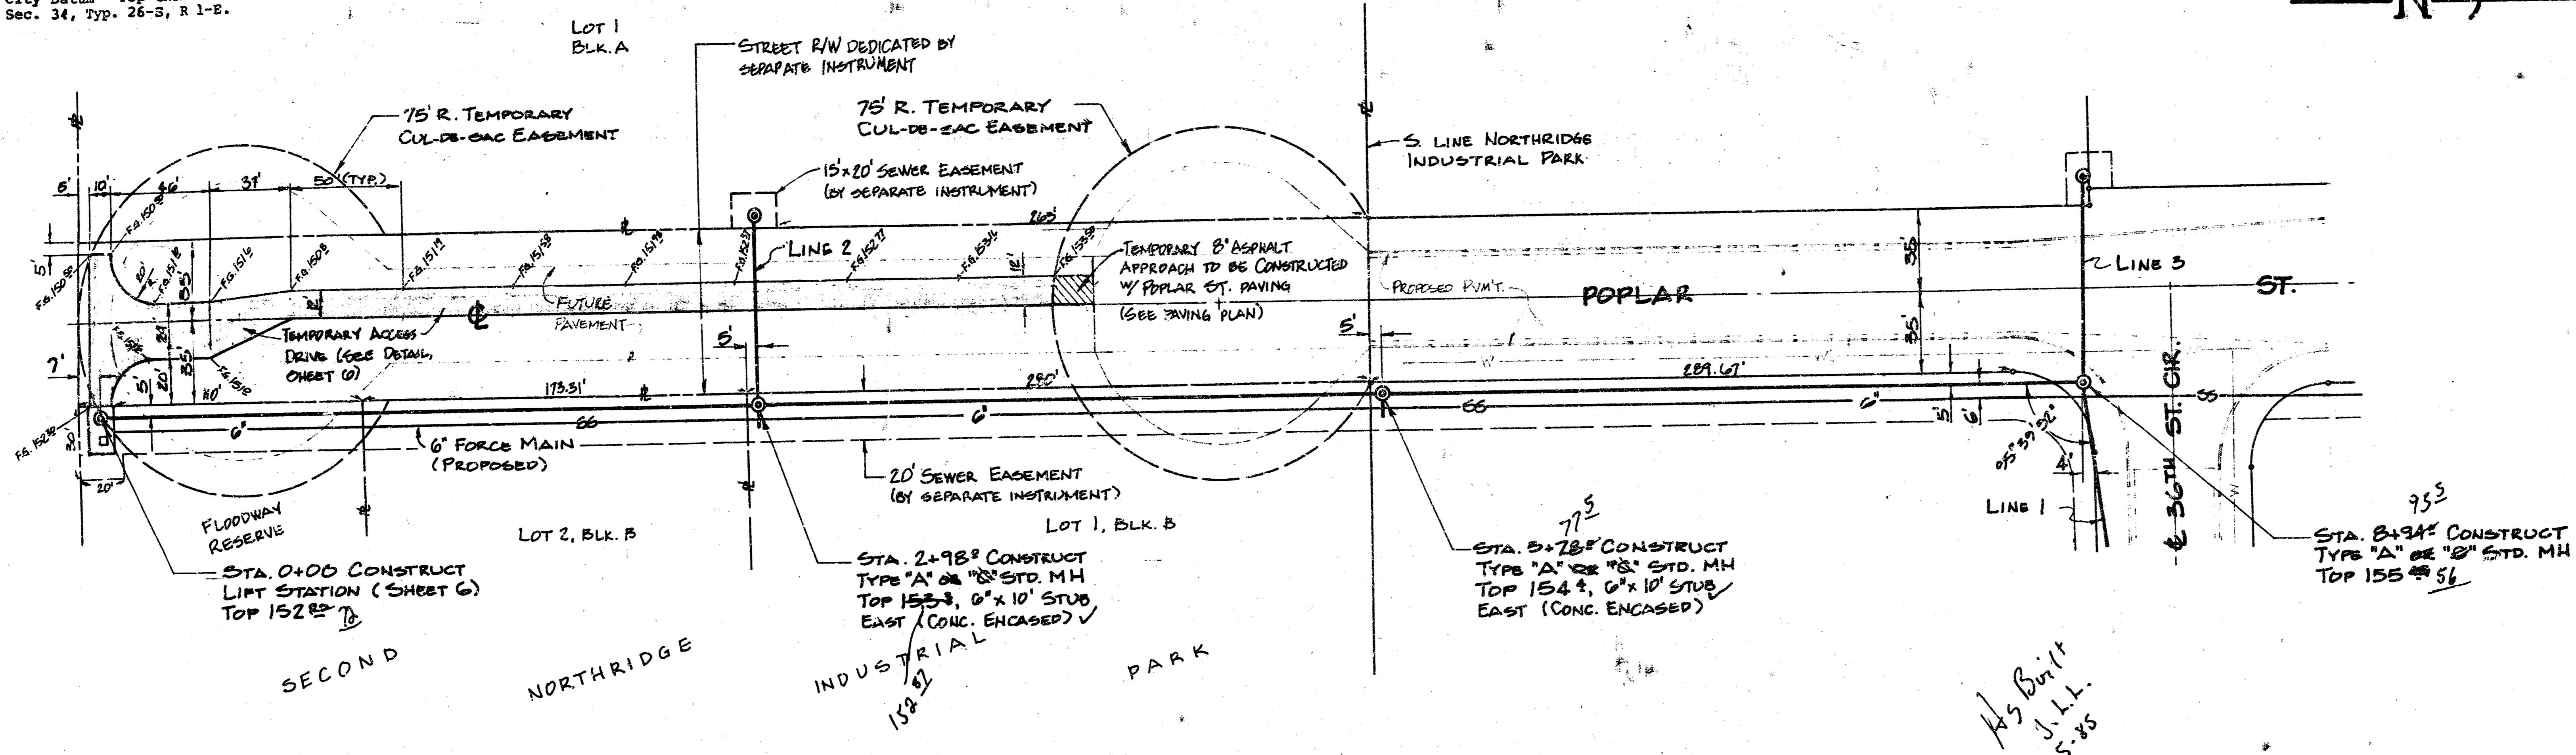 Sec. 34, Typ. 26-S, R 1-E.
N
LOT 1
BLK. A
STREET R/W DEDICATED BY
SEPARATE INSTRUMENT
75' R. TEMPORARY
CUL-DE-SAC EASEMENT
75' R. TEMPORARY
CUL-DE-SAC EASEMENT
15'x20' SEWER EASEMENT
(BY SEPARATE INSTRUMENT)
S. LINE NORTHRIDGE
INDUSTRIAL PARK
5'
10'
46'
37'
50' (TYP.)
265'
LINE 2
TEMPORARY 8" ASPHALT
APPROACH TO BE CONSTRUCTED
W/ POPLAR ST. PAVING
(SEE PAVING PLAN)
PROPOSED PVM'T.
POPLAR
ST.
LINE 3
35'
35'
FUTURE
PAVEMENT
TEMPORARY ACCESS
DRIVE (SEE DETAIL,
SHEET 6)
20'
R
35'
24'
35'
20'
5'
5'
7'
12'
12'
5'
5'
110'
173.31'
280'
289.67'
6"
SS
6"
SS
6"
SS
5'
6'
4'
6" FORCE MAIN
(PROPOSED)
20' SEWER EASEMENT
(BY SEPARATE INSTRUMENT)
30'
20'
FLOODWAY
RESERVE
LOT 2, BLK. B
LOT 1, BLK. B
LINE 1
℄ 36TH ST. CIR.
STA. 0+00 CONSTRUCT
LIFT STATION (SHEET 6)
TOP 152
72
STA. 2+98 CONSTRUCT
TYPE "A" OR "C" STD. MH
TOP 153, 6"x10' STUB
EAST (CONC. ENCASED) ✓
152 87
77 5
STA. 5+78 CONSTRUCT
TYPE "A" OR "C" STD. MH
TOP 154, 6"x10' STUB ✓
EAST (CONC. ENCASED)
93 5
STA. 8+94 CONSTRUCT
TYPE "A" OR "C" STD. MH
TOP 155 56
SECOND NORTHRIDGE INDUSTRIAL PARK
As Built
J.L.L.
5-85